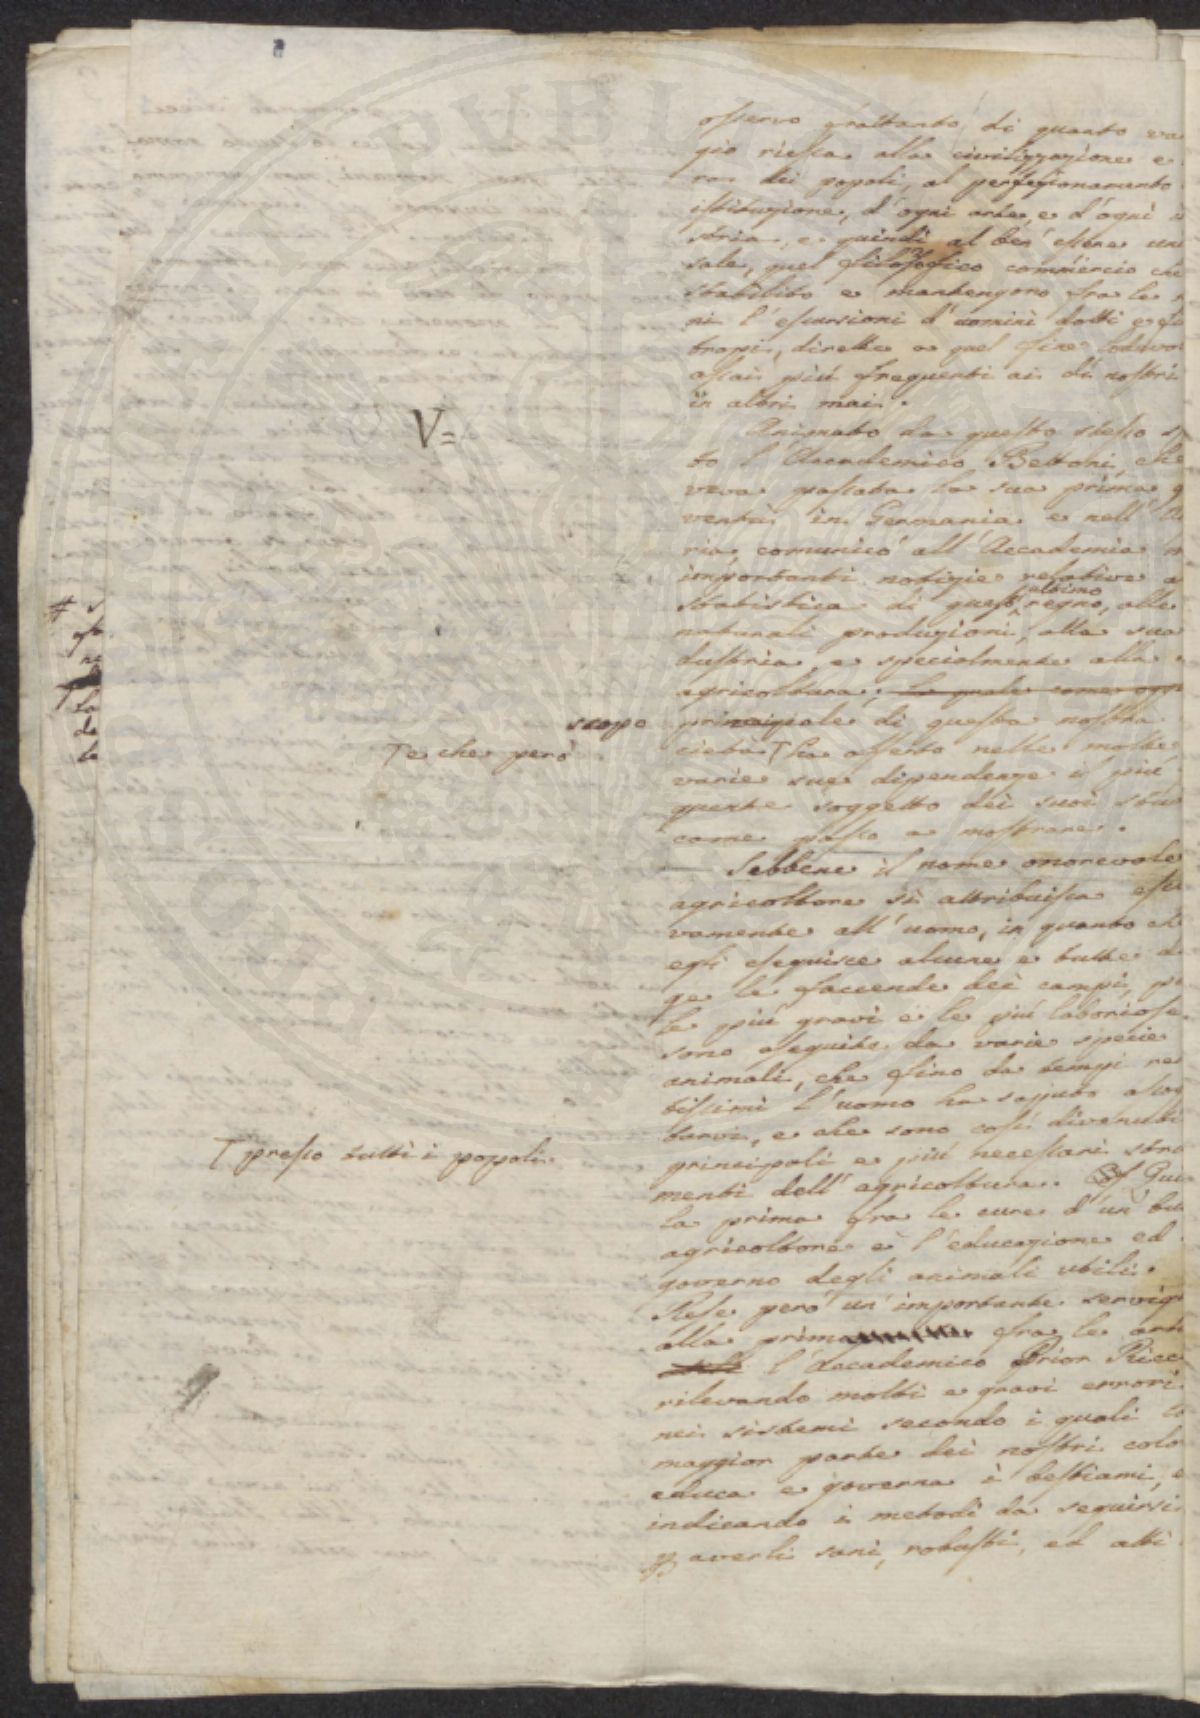 osservo frattanto di quanto va
gio riesca alla civilizzazione e
ra dei popoli, al perfezionamento
istituzione, d'ogni arte, e d'ogni i
stria, e quindi al ben' essere uni
sale, quel filosofico commercio che
stabilito e mantengono fra le n
ni l'escursioni d'uomini dotti e fi
tropi, dirette a quel fine lodevo
assai più frequenti ai dì nostri
in altri mai.
V=
Animato da questo stesso s
to l'Accademico Bettoni, che
veva passata la sua prima g
ventù in Germania e nell' U
ria, comunicò all' Accademia m
importanti notizie relative a
statistica di quest' ultimo regno, alle
naturali produzioni, alla sua
dustria, e specialmente alla
agricoltura; la quale come ogge
scopo principale di questa nostra
cietà T ha offerto nelle molte
T e che però
varie sue dipendenze il più
quente soggetto dei suoi stu
come passo a mostrare.
Sebbene il nome onorevole
agricoltore si attribuisca esclu
vamente all' uomo, in quanto ch
egli eseguisce alcune e tutte di
ge le faccende dei campi, p
le più gravi e le più laboriose
sono eseguite da varie specie
animali, che fino da tempi re
tissimi l'uomo ha saputo assog
tarvi, e che sono così divenuti
T presso tutti i popoli
principali e più necessari stru
menti dell' agricoltura. Qui
la prima fra le cure d'un bu
agricoltore è l'educazione ed
governo degli animali utili.
Rese però un' importante servig
alla prima fra le arti
l'Accademico Prior Ricc
rilevando molti e gravi errori
nei sistemi secondo i quali la
maggior parte dei nostri colo
educa e governa i bestiami, e
indicando i metodi da seguirsi
p averli sani, robusti, ed atti